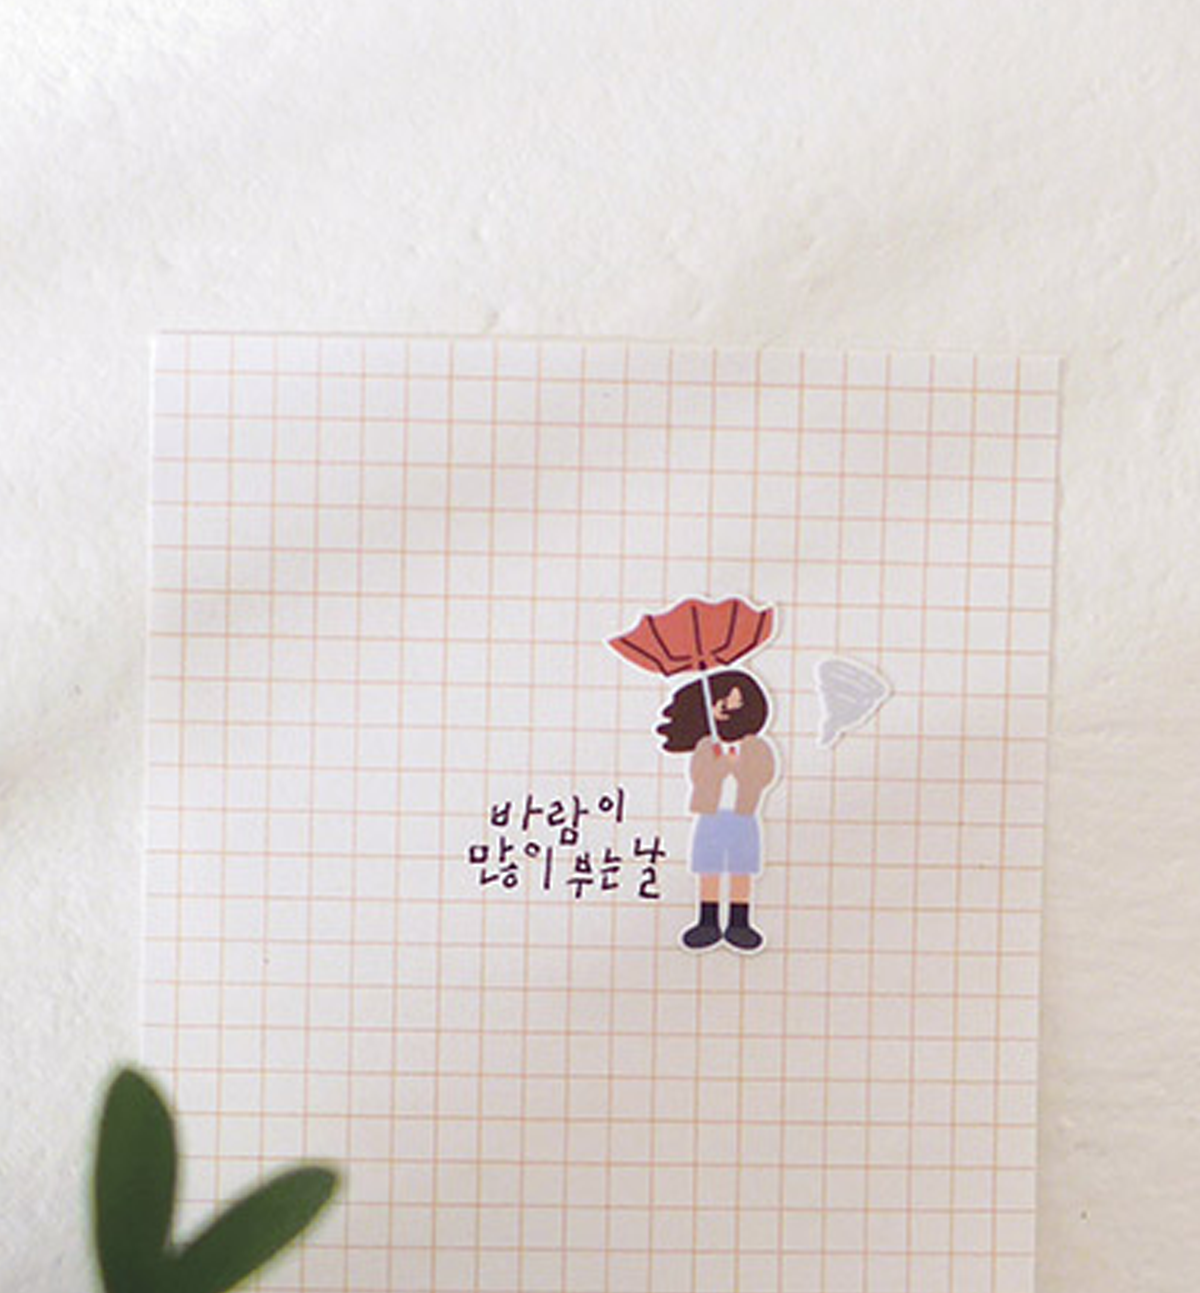 바람이
많이 부는 날